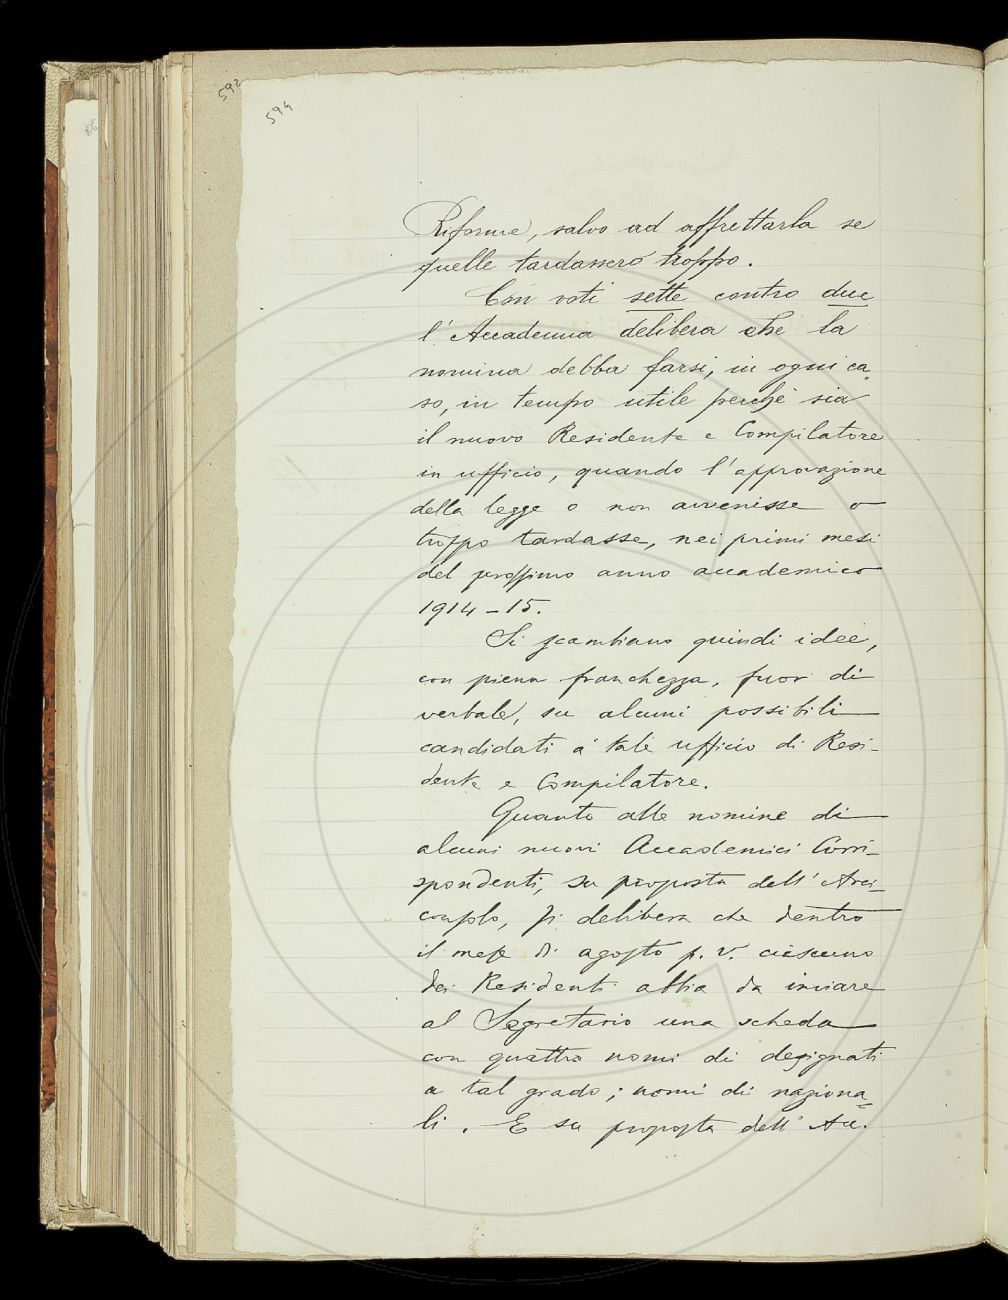 592
594
Riforme, salvo ad affrettarla se
quelle tardassero troppo.
Con voti sette contro due
l'Accademia delibera che la
nomina debba farsi, in ogni ca-
so, in tempo utile perchè sia
il nuovo Residente e Compilatore
in ufficio, quando l'approvazione
della legge o non avvenisse o
troppo tardasse, nei primi mesi
del prossimo anno accademico
1914-15.
Si scambiano quindi idee,
con piena franchezza, fuor di
verbale, su alcuni possibili
candidati a tale ufficio di Resi-
dente e Compilatore.
Quanto alle nomine di
alcuni nuovi Accademici Corri-
spondenti, su proposta dell'Arci-
consolo, si delibera che dentro
il mese di agosto p. v. ciascuno
dei Residenti abbia da inviare
al Segretario una scheda
con quattro nomi di designati
a tal grado; nomi di naziona-
li. E su proposta dell'Acc.